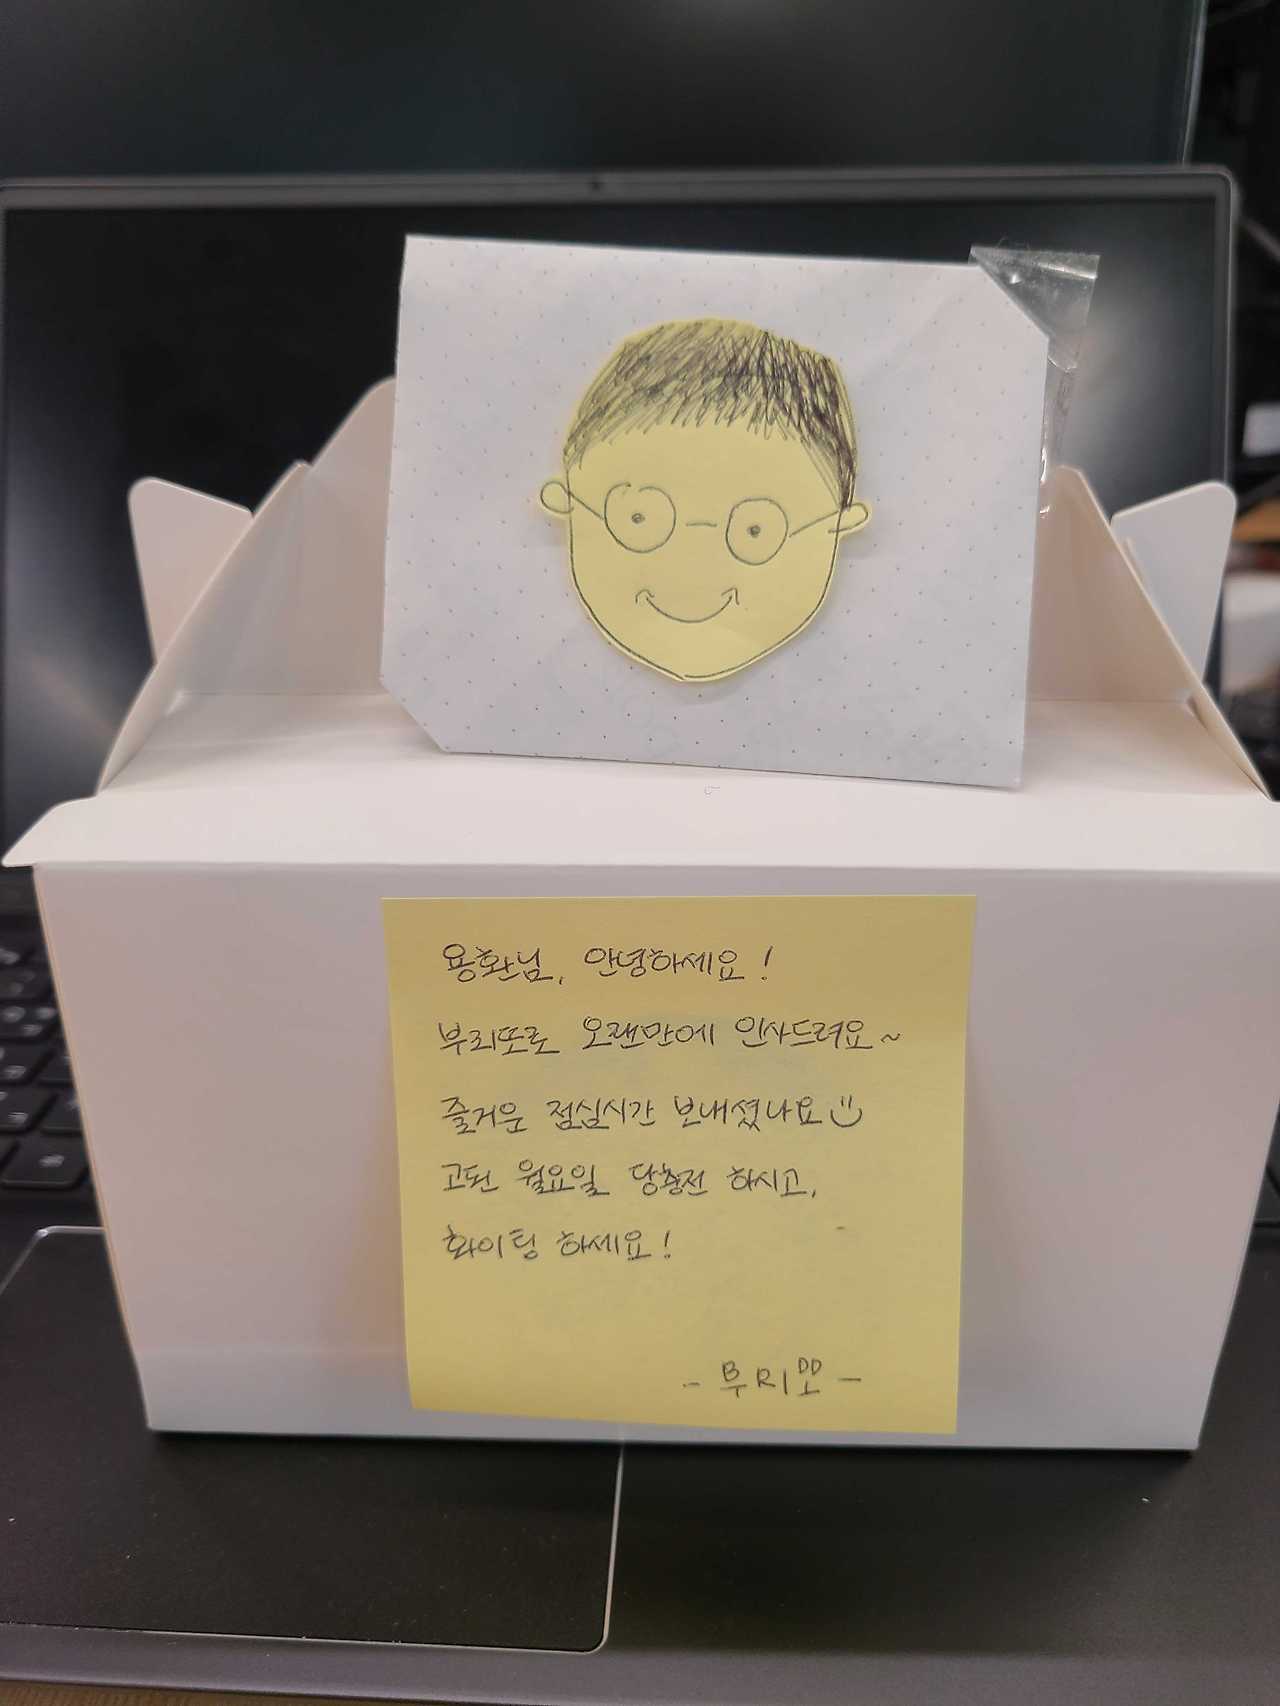 용환님, 안녕하세요!
부리또로 오랜만에 인사드려요~
즐거운 점심시간 보내셨나요
고된 월요일 당충전 하시고,
화이팅 하세요!
- 부리또 -